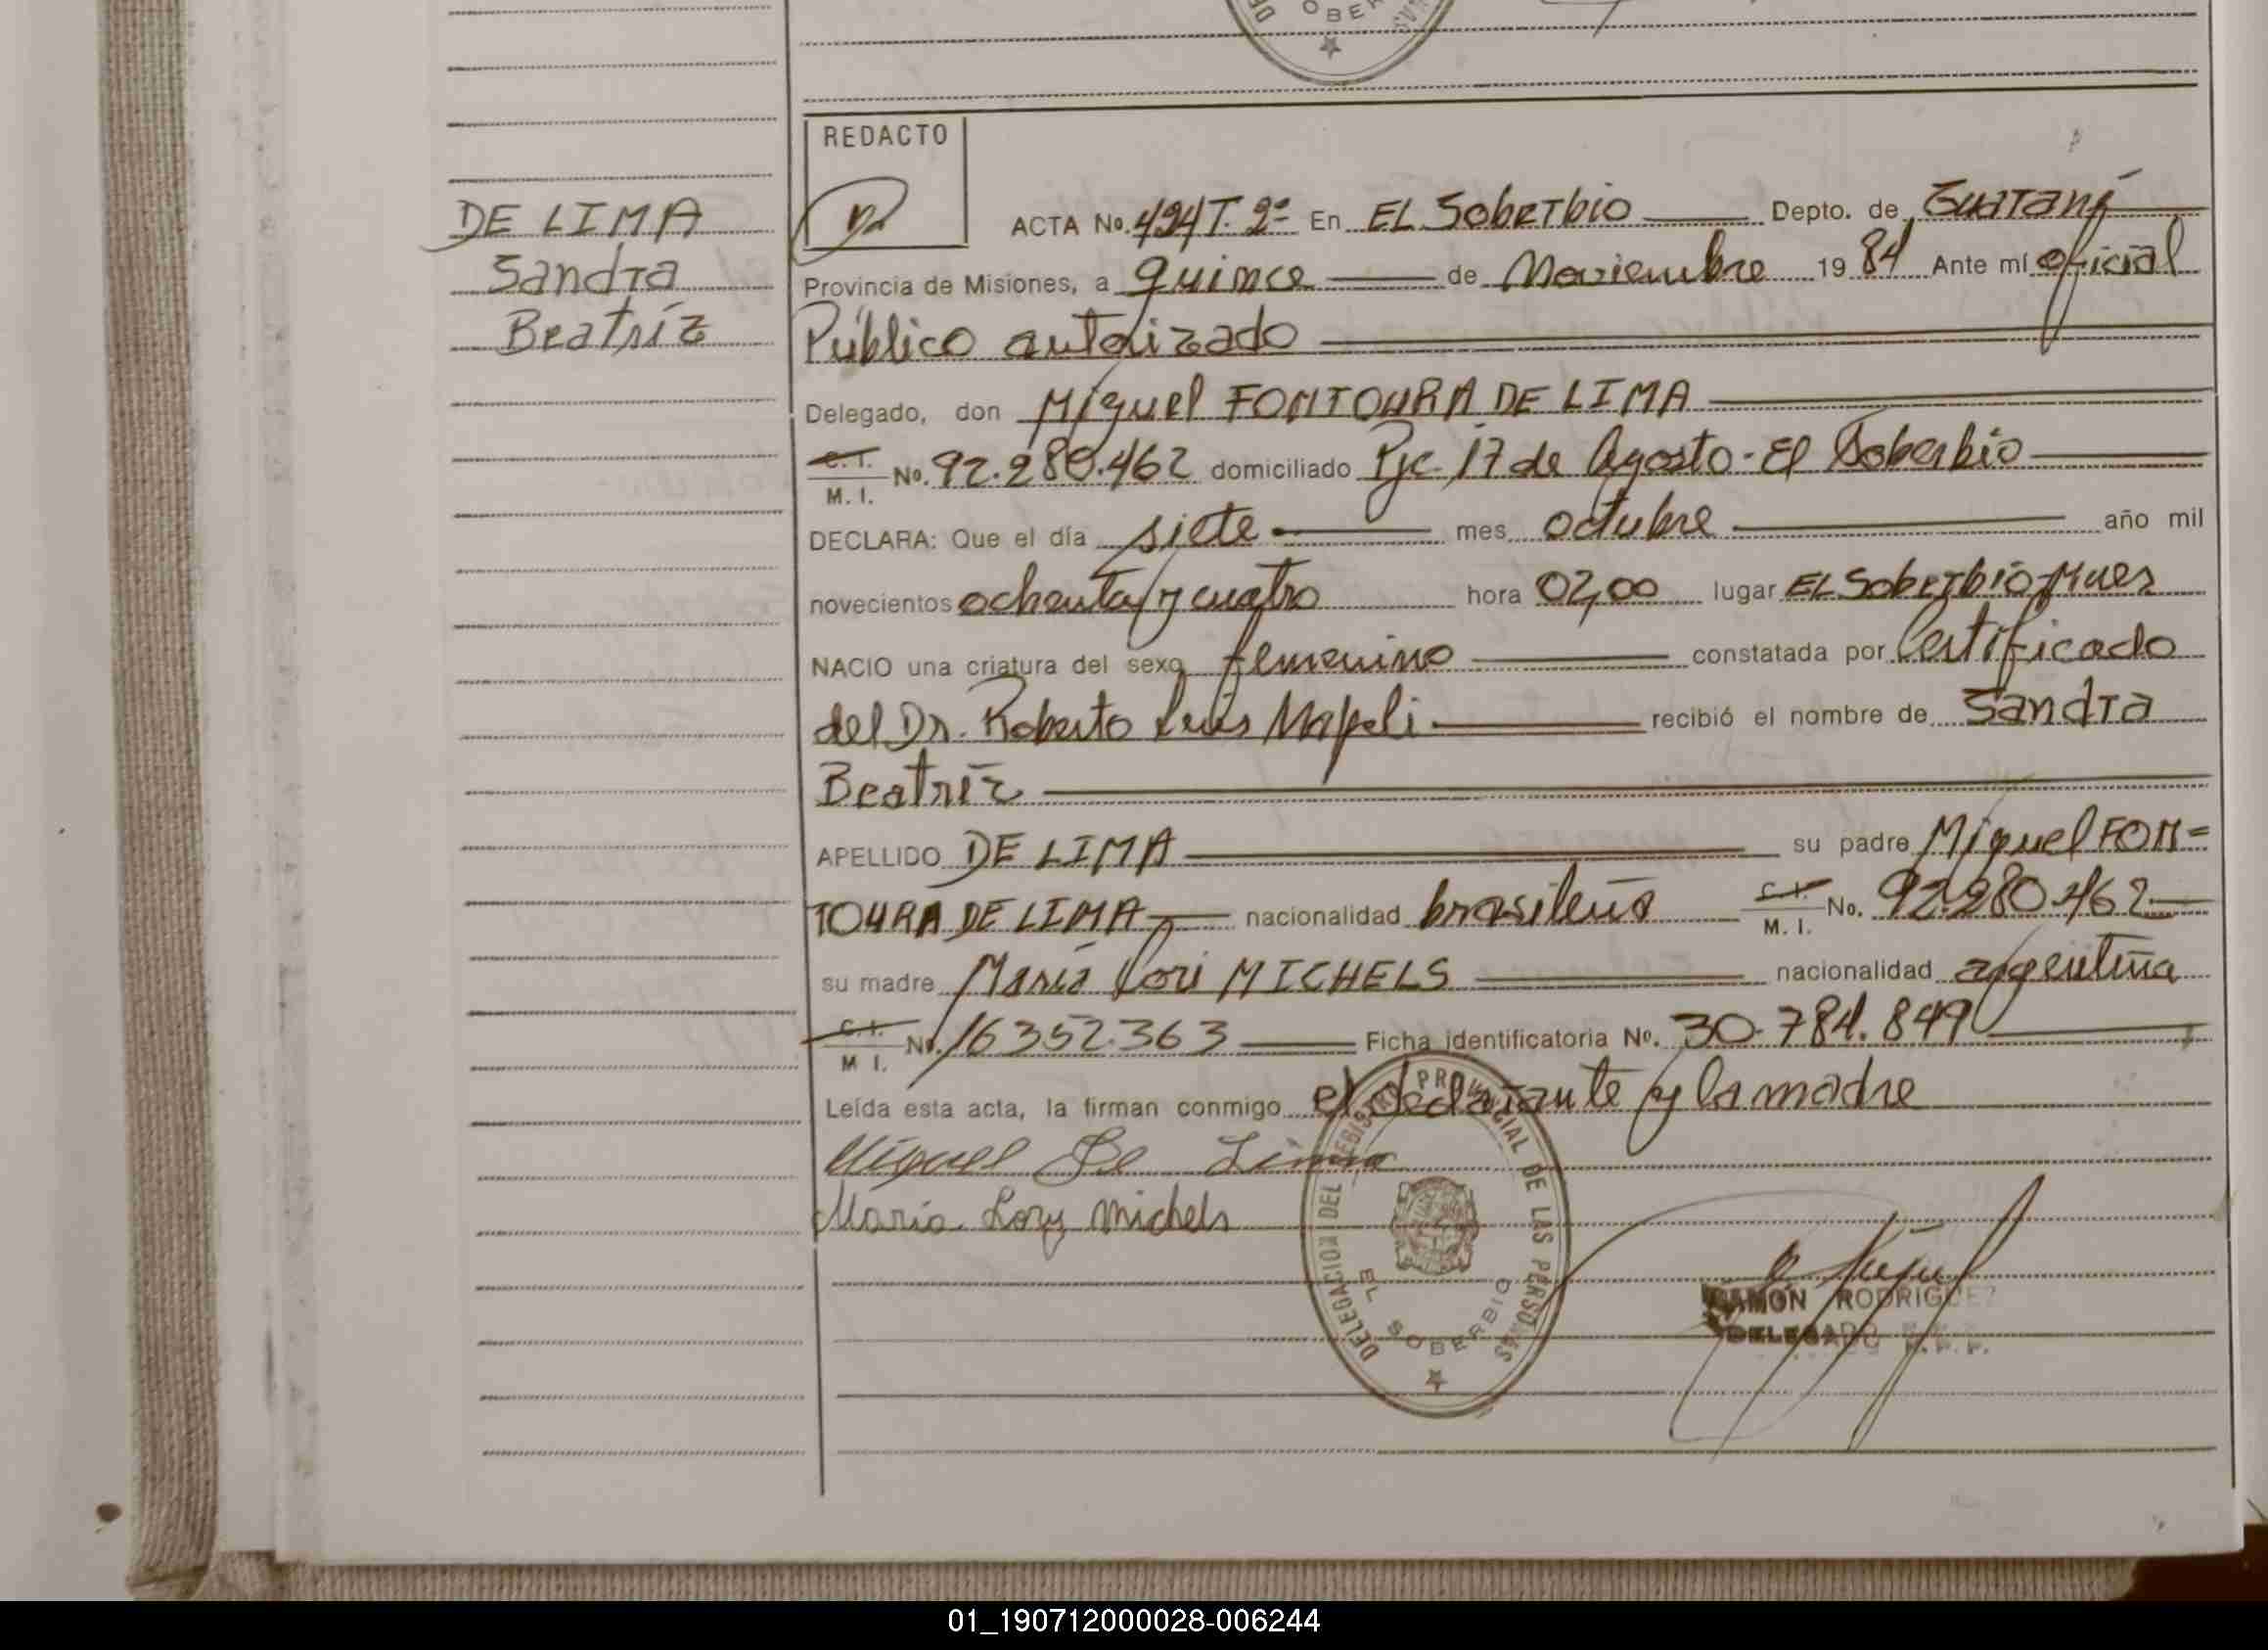 DE LIMA
Sandra
Beatríz
REDACTO
ACTA No. 494 T. 2º En EL SoberBio Depto. de Guaraný
Provincia de Misiones, a quince de Noviembre 1984 Ante mí oficial
Público autorizado
Delegado, don Miguel FONTOURA DE LIMA
C.I. M. I. No. 92.280.462 domiciliado Pje 17 de Agosto - El Soberbio
DECLARA: Que el día siete mes octubre año mil
novecientos ochenta y cuatro hora 02,00 lugar EL SoberBio-Mnes
NACIO una criatura del sexo femenino constatada por Certificado
del Dr. Roberto Luis Napoli recibió el nombre de Sandra
Beatríz
APELLIDO DE LIMA su padre Miguel FON=
TOURA DE LIMA nacionalidad brasileño C.I. M. I. No. 92.280.462
su madre María Lori MICHELS nacionalidad argentina
C.I. M I. No. 16352.363 Ficha identificatoria No. 30.784.849
Leída esta acta, la firman conmigo el declarante y la madre
Miguel De Lima
Maria Lory Michels
DELEGACION DEL REGISTRO PROVINCIAL DE LAS PERSONAS
EL SOBERBIO
RAMON RODRIGUEZ
DELEGADO
01_190712000028-006244